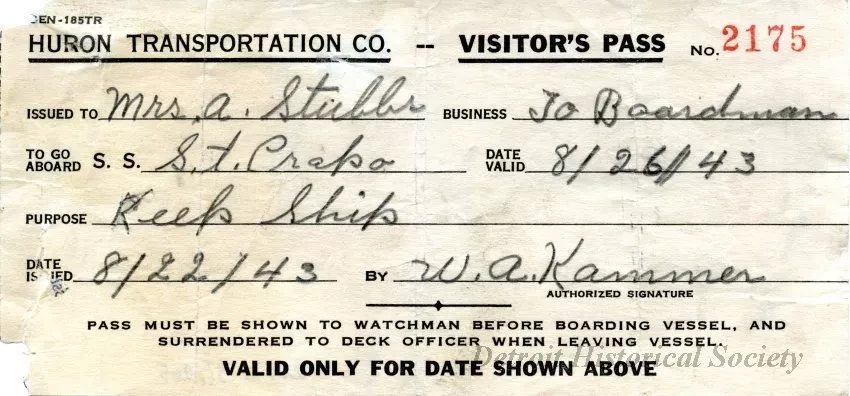 CEN-185TR
HURON TRANSPORTATION CO. -- VISITOR'S PASS NO. 2175
ISSUED TO Mrs. A. Stubbs BUSINESS To Boardman
TO GO ABOARD S. S. S.T. Crapo DATE VALID 8/26/43
PURPOSE Keep Ship
DATE ISSUED 8/22/43 BY W. A. Kammer
AUTHORIZED SIGNATURE
PASS MUST BE SHOWN TO WATCHMAN BEFORE BOARDING VESSEL, AND
SURRENDERED TO DECK OFFICER WHEN LEAVING VESSEL.
Detroit Historical Society
VALID ONLY FOR DATE SHOWN ABOVE